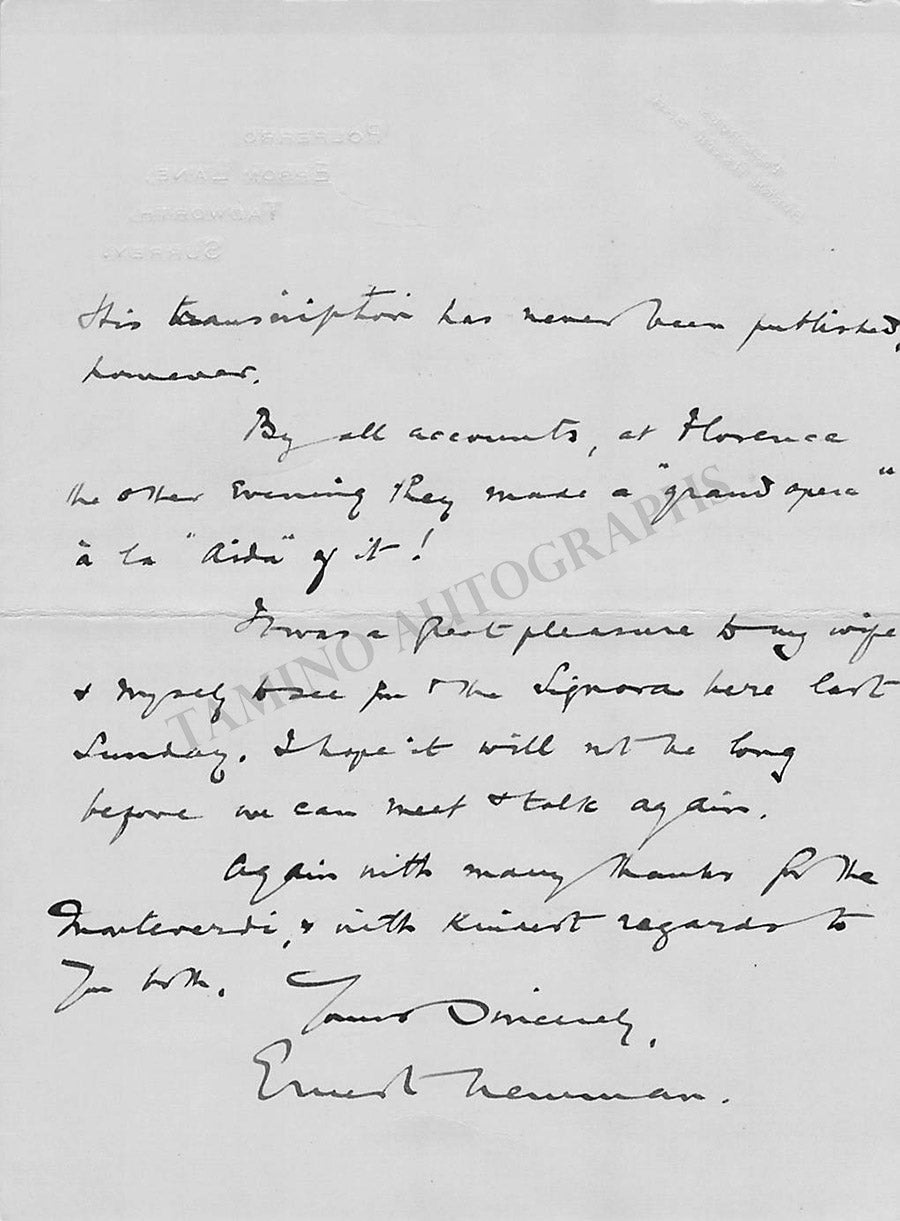 POLPERRO
EPSOM LANE.
TADWORTH.
SURREY.
His transcription has never been published,
however.
By all accounts, at Florence
the other evening they made a "grand opera"
à la "Aida" of it!
It was a great pleasure to my wife
& myself to see you & the Signora here last
Sunday. I hope it will not be long
before we can meet & talk again.
Again with many thanks for the
Monteverdi, & with kindest regards to
you both.
Yours Sincerely,
Ernest Newman.
TAMINO AUTOGRAPHS